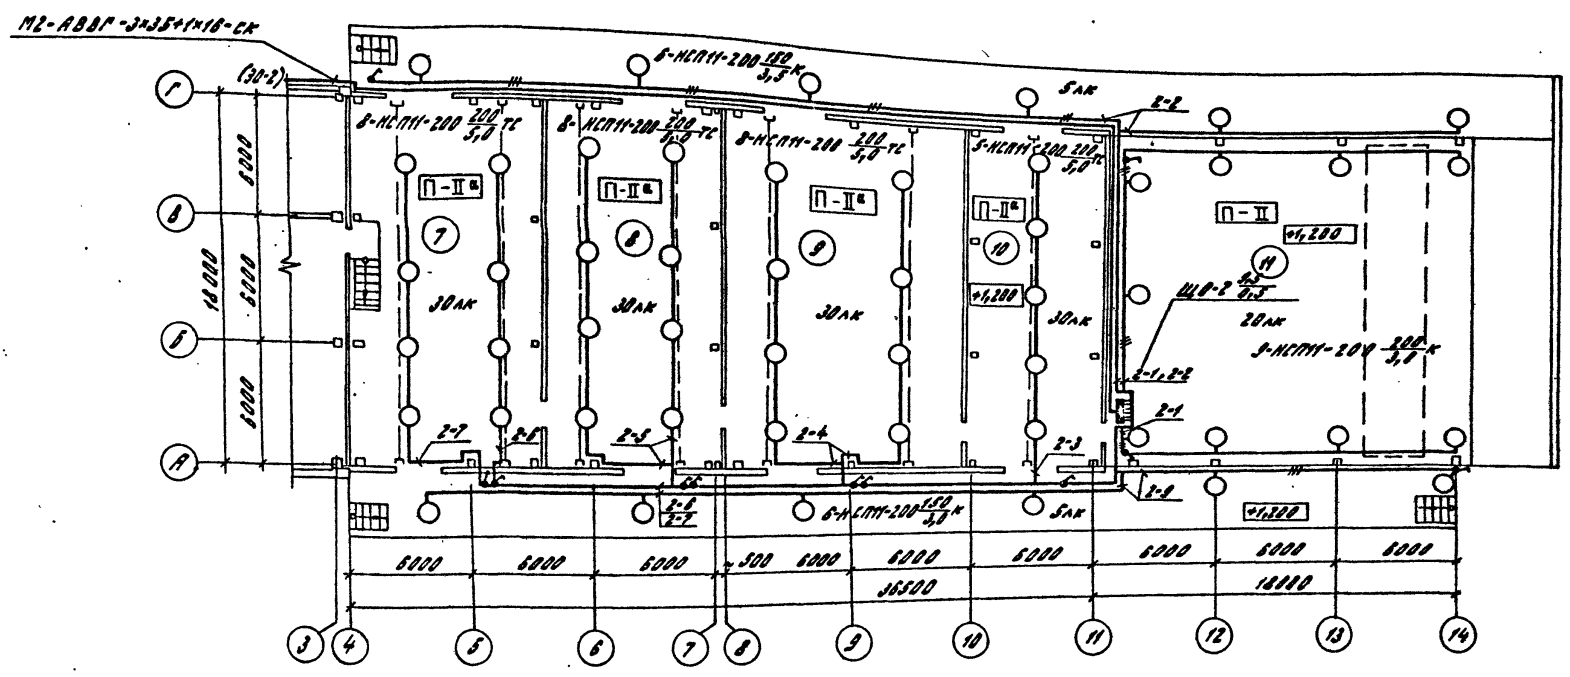 М2-АВВГ-3×35+1×16-СК
(ЭО-2)
6-НСП11-200 150/3,5 К
5лк
2-2
8-НСП11-200 200/5,0 ТС
8-НСП11-200 200/5,0 ТС
8-НСП11-200 200/5,0 ТС
5-НСП11-200 200/5,0 ТС
Г
В
Б
А
18000
6000
6000
6000
П-IIа
П-IIа
П-IIа
П-IIа
П-II
7
8
9
10
11
+1,200
+1,200
30лк
30лк
30лк
30лк
ЩО-2 1,5/0,5
20лк
9-НСП11-200 200/3,0 К
2-1, 2-2
2-1
2-7
2-6
2-5
2-4
2-3
2-9
2-6
2-7
6-НСП11-200 150/3,0 К
5лк
+1,200
6000
6000
6000
500
6000
6000
6000
6000
6000
6000
36500
18000
3
4
5
6
7
8
9
10
11
12
13
14